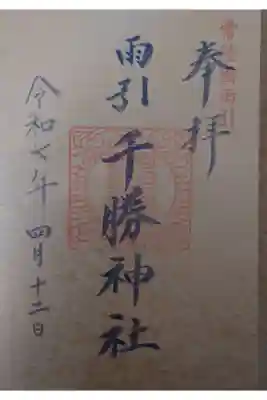 奉拝
雨引
千勝神社
令和七年四月十二日